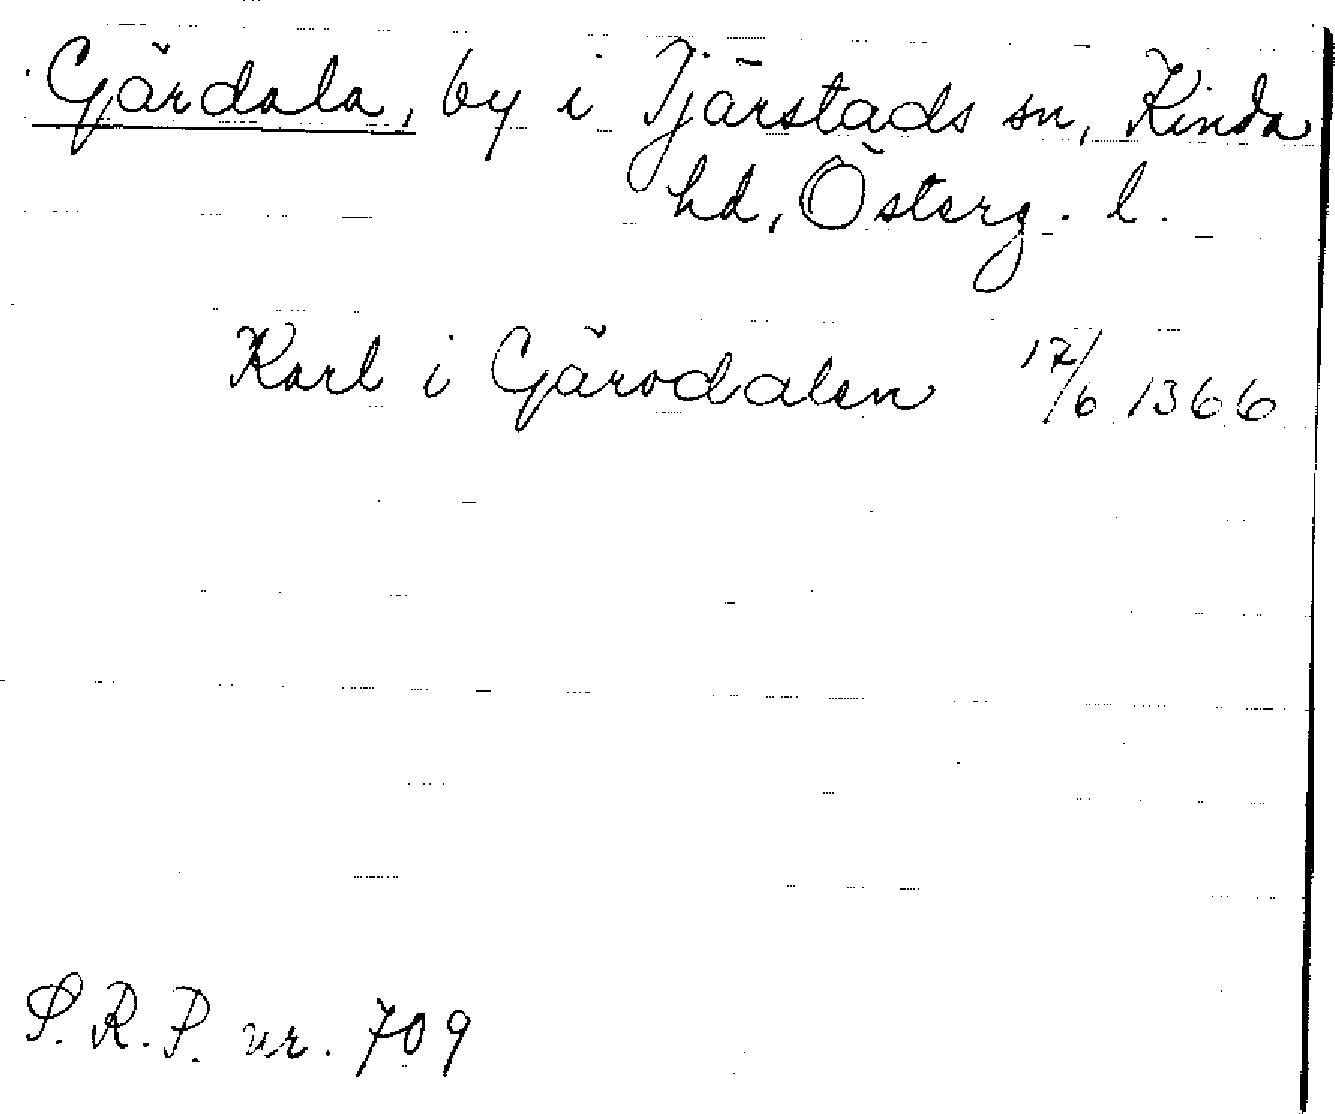 Gärdala, by i Tjärstads sn, Kinda
hd, Österg. l.
Karl i Gärodalen 17/6 1366
S.R.P. nr. 709